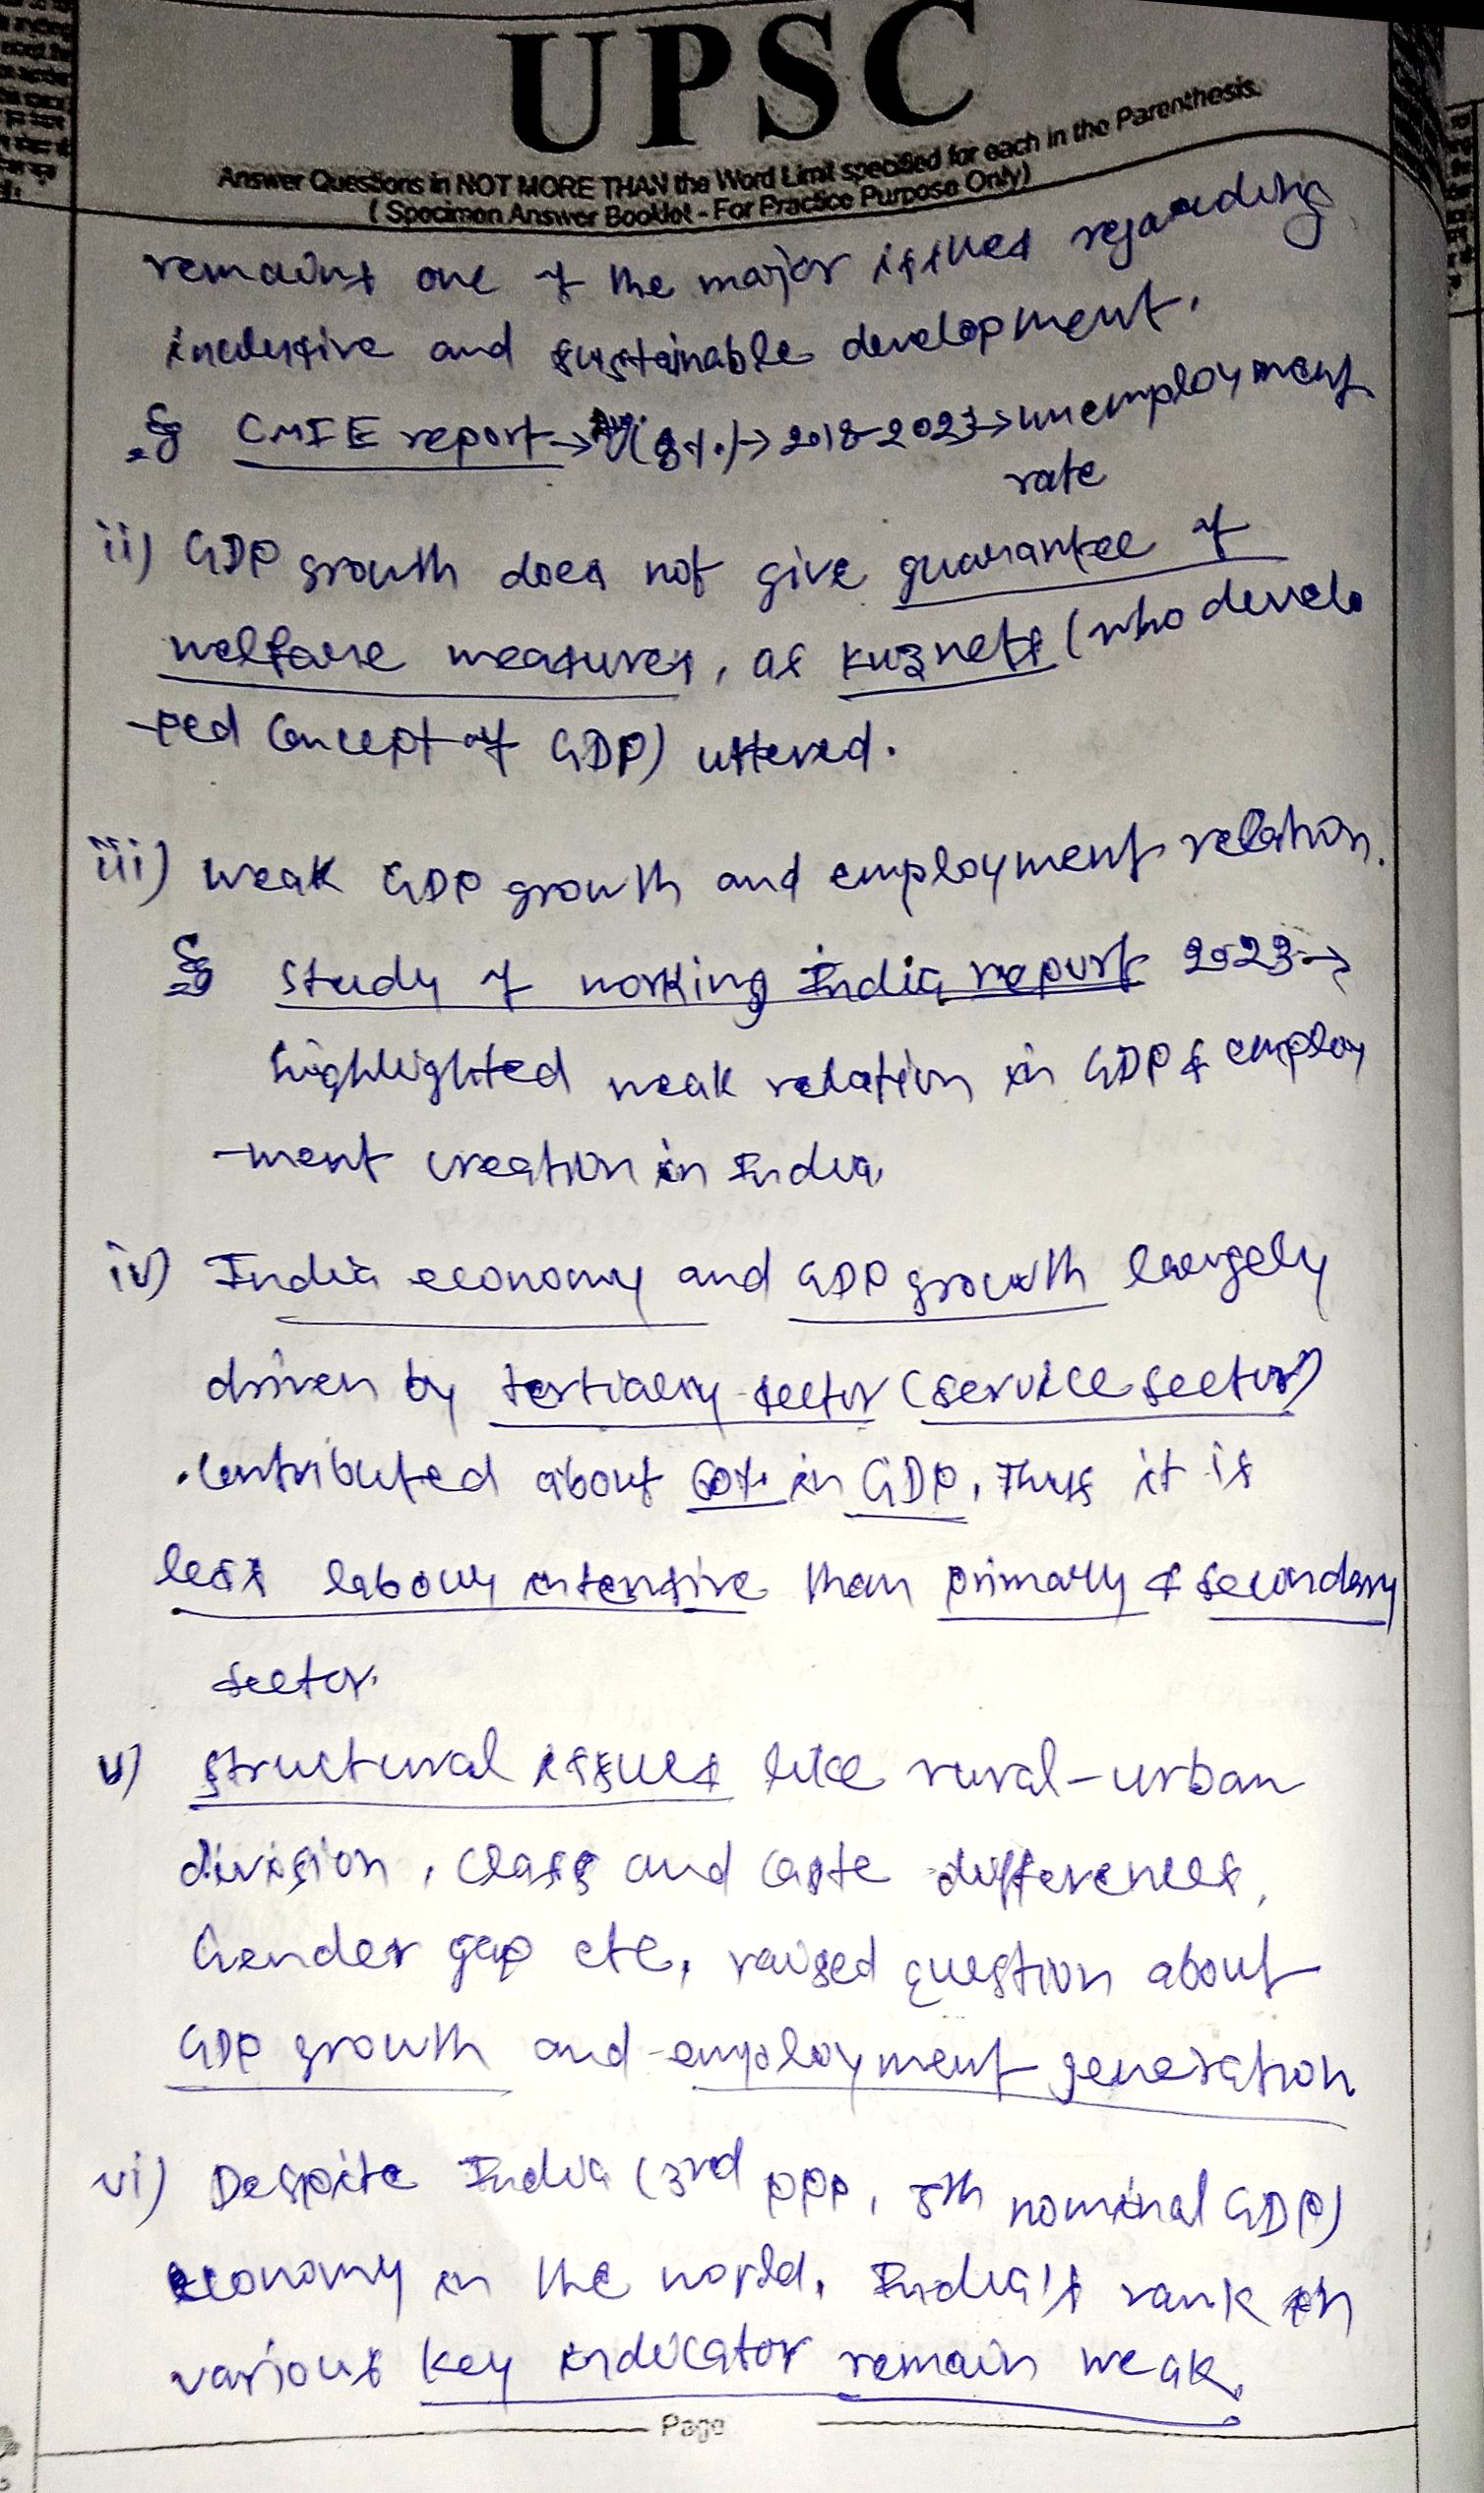 UPSC
Answer Questions in NOT MORE THAN the Word Limit specified for each in the Parenthesis.
( Specimen Answer Booklet - For Practice Purpose Only)
remains one of the major issues regarding
inclusive and sustainable development.
Eg CMIE report → Av. (8%) → 2018-2023 → unemployment
rate
ii) GDP growth does not give guarantee of
welfare measures, as Kuznets (who develo
-ped Concept of GDP) uttered.
iii) Weak GDP growth and employment relation.
Eg Study of working India report 2023 →
highlighted weak relation in GDP & employ
-ment creation in India
iv) India economy and GDP growth largely
driven by tertiary sector (service sector)
contributed about 60% in GDP, Thus it is
less labour intensive than primary & secondary
sector.
v) Structural issues like rural-urban
division, class and caste differences,
Gender gap etc, raised question about
GDP growth and employment generation
vi) Despite India (3rd PPP, 5th nominal GDP)
economy in the world, India's rank in
various key indicator remain weak.
Page